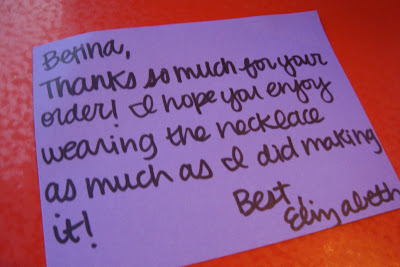 Betina,
Thanks so much for your
order! I hope you enjoy
wearing the necklace
as much as I did making
it!
Best
Elizabeth